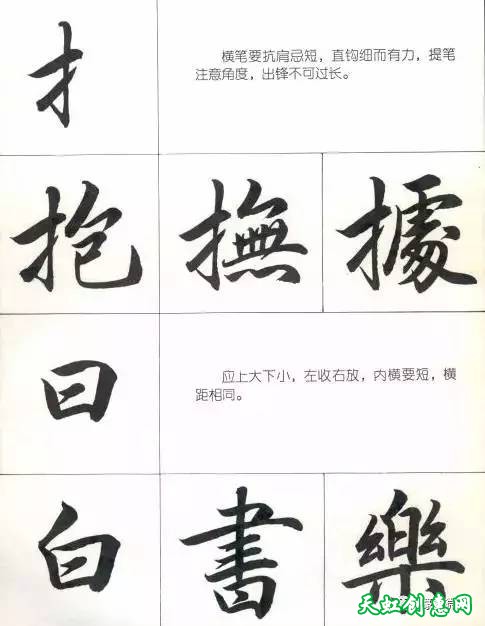 扌
横笔要抗肩忌短，直钩细而有力，提笔
注意角度，出锋不可过长。
抱 撫 據
曰
应上大下小，左收右放，内横要短，横
距相同。
白 書 樂
天虹创意网